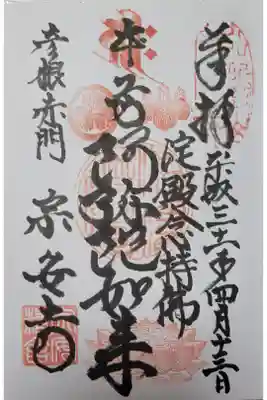 奉拝 平成三十一年四月十三日
淀殿念持佛
阿弥陀如来
彦根赤門
宗安寺